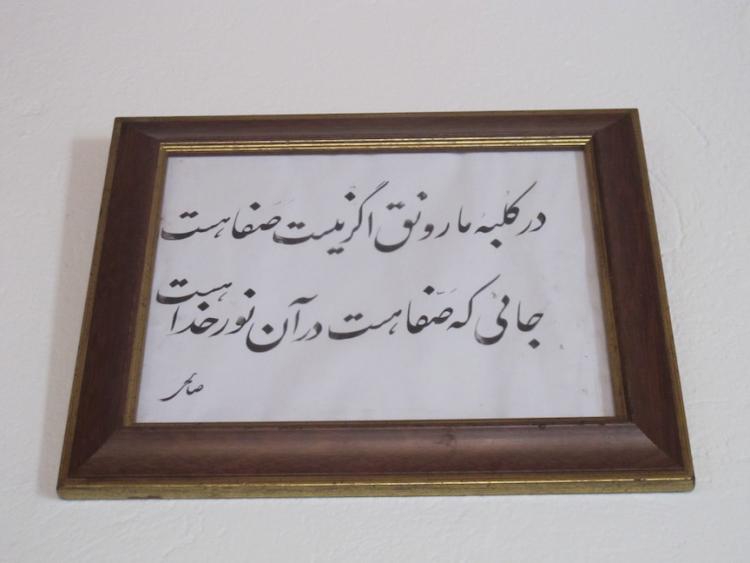 در کلبه ما رونق اگر نیست صفا هست
جائی که صفا هست در آن نور خدا هست